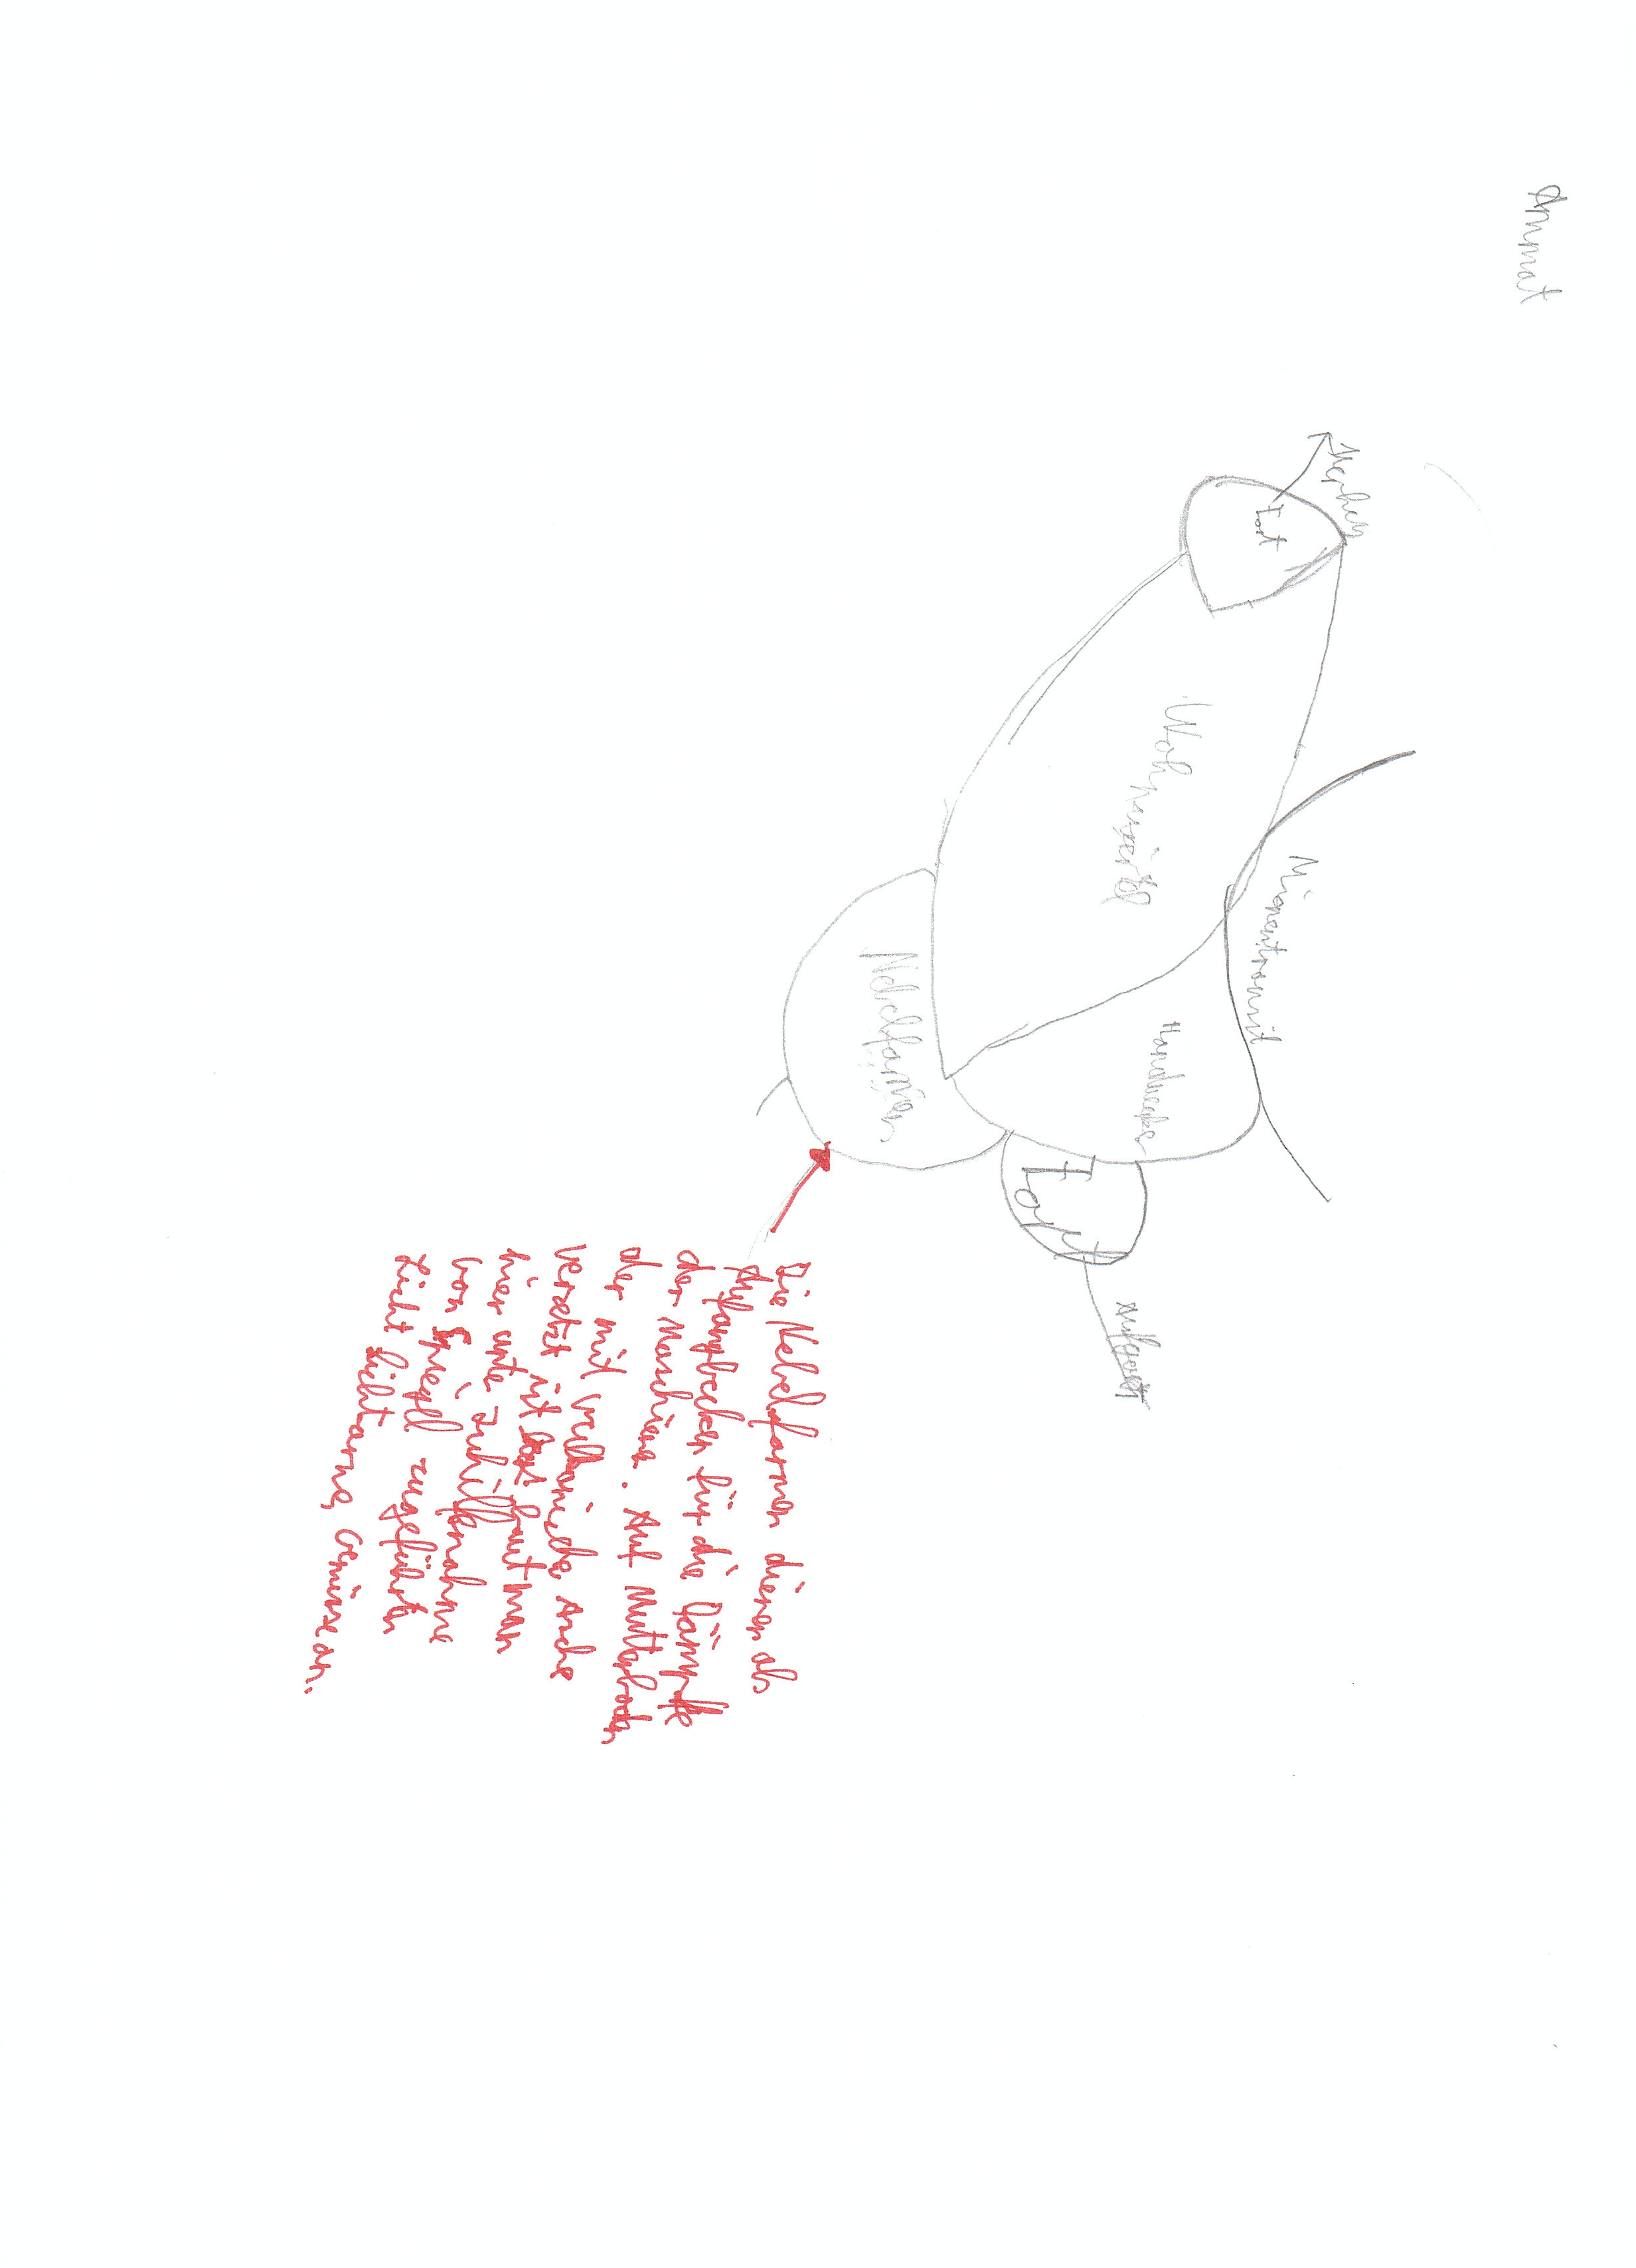 Ammat
Fort
Minentransit
Wohnviertel
Handwerker
Fort
Nebelfarmen
Die Nebelfarmen dienen als
Aufangbecken für die Dämpfe
der Maschiene. Auf Mutterboden
der mit vulkanische Asche
versetzt ist baut man
hier unter Zuhilfenahme
von Spiegel zugeführten
Licht lichtarme Gemüse an.